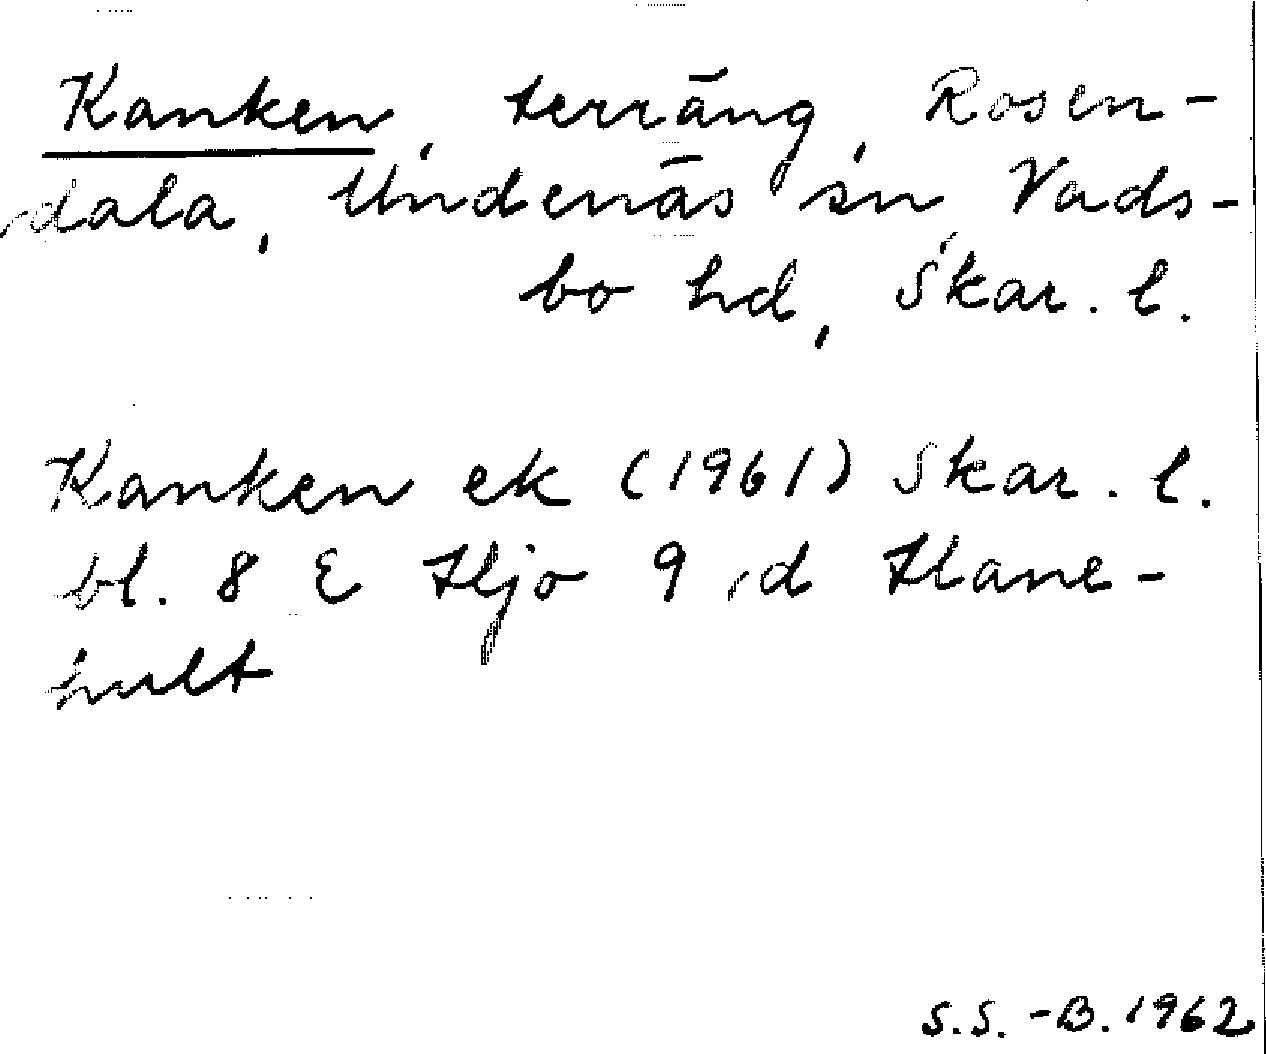 Kanken, terräng, Rosen-
dala, Undenäs sn, Vads-
bo hd, Skar. l.
Kanken ek (1961) Skar. l.
bl. 8 E Hjo 9 d Hane-
hult
S.S.-B. 1962